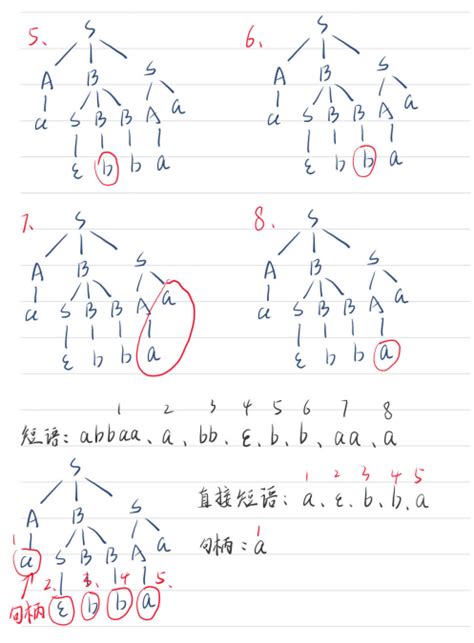 5、 6、
S S
A B S A B S
a S B B A a a S B B A a
ε b b a ε b b a
7、 8、
S S
A B S A B S
a S B B A a a S B B A a
ε b b a ε b b a
1 2 3 4 5 6 7 8
短语：abbaa、a、bb、ε、b、b、aa、a
S
1 2 3 4 5
直接短语：a、ε、b、b、a
A B S
1
句柄：a
1 a S B B A a
2. 3. 4 5.
句柄 ε b b a